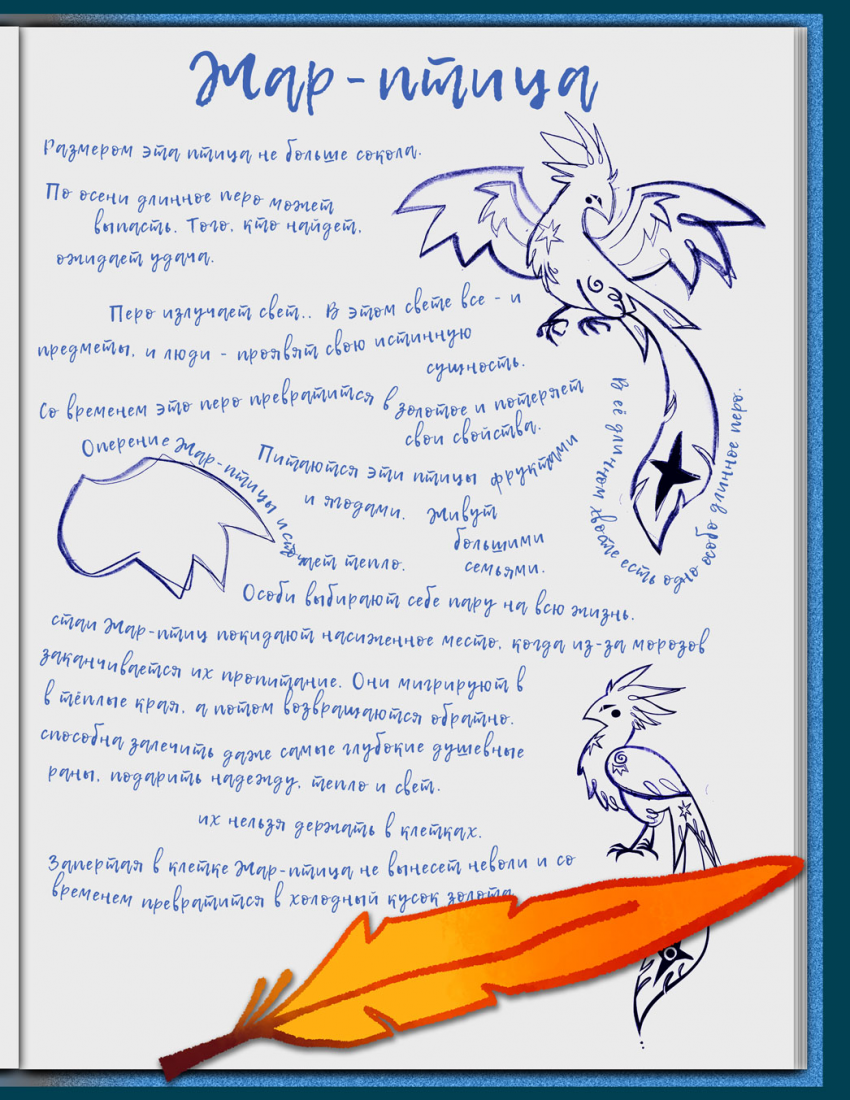 Жар-птица
Размером эта птица не больше сокола.
По осени длинное перо может
выпасть. Того, кто найдет,
ожидает удача.
Перо излучает свет.. В этом свете все - и
предметы, и люди - проявят свою истинную
сущность.
Со временем это перо превратится в золотое и потеряет
свои свойства.
В её длинном хвосте есть одно особо длинное перо.
Оперение Жар-птицы источает тепло.
Питаются эти птицы фруктами
и ягодами. Живут
большими
семьями.
Особи выбирают себе пару на всю жизнь.
стаи Жар-птиц покидают насиженное место, когда из-за морозов
заканчивается их пропитание. Они мигрируют в
в тёплые края, а потом возвращаются обратно.
способна залечить даже самые глубокие душевные
раны, подарить надежду, тепло и свет.
их нельзя держать в клетках.
Запертая в клетке Жар-птица не вынесет неволи и со
временем превратится в холодный кусок золота